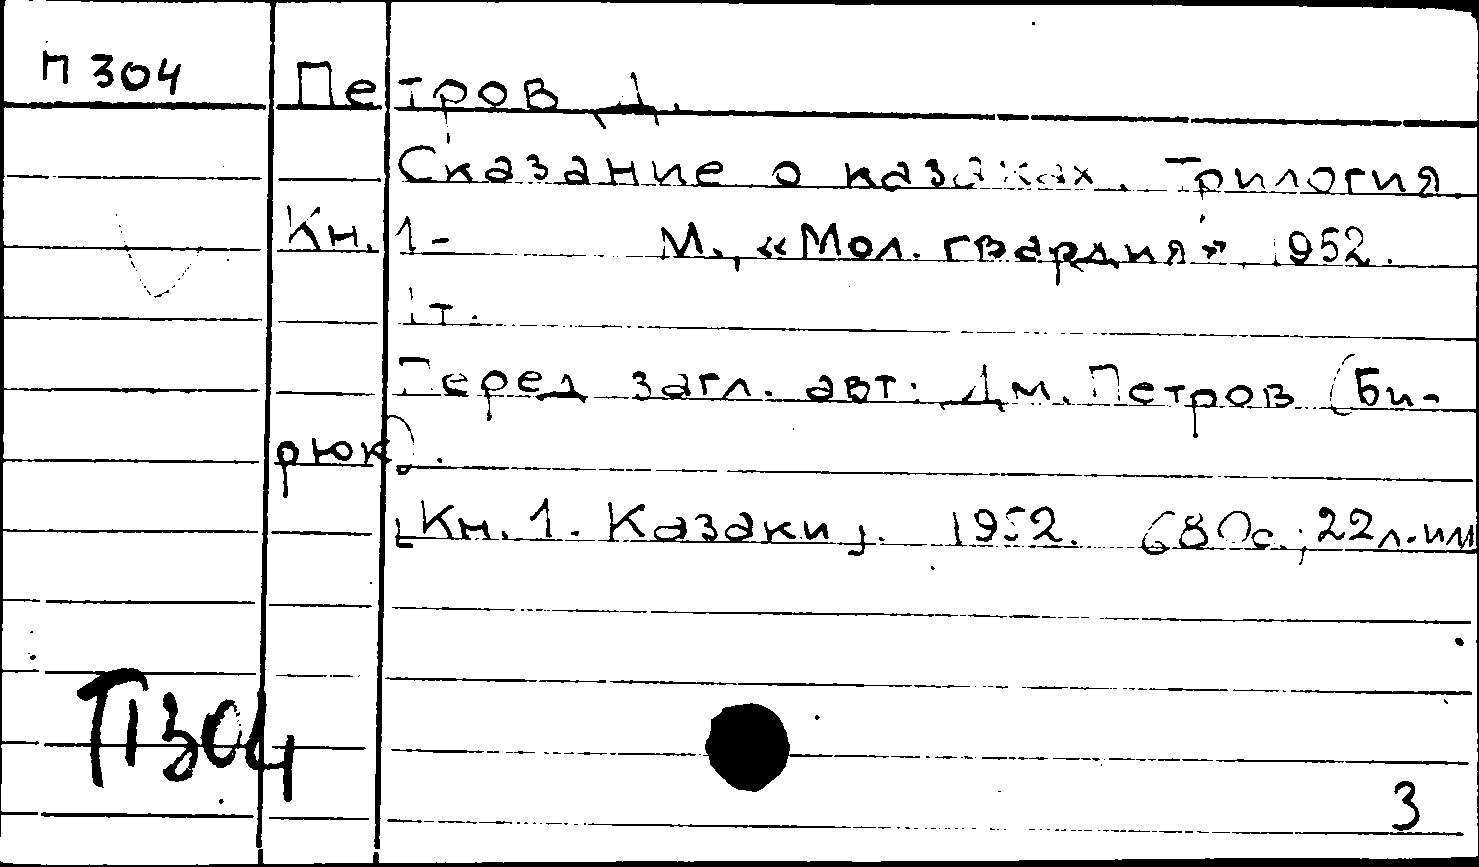 П 304 Петров Д.
Сказание о казаках. Трилогия.
Кн. 1- М., «Мол. гвардия», 1952.
1т.
Перед загл. авт: Дм. Петров (Би-
рюк).
[Кн. 1. Казаки]. 1952. 680с.; 22л.ил
П304
3